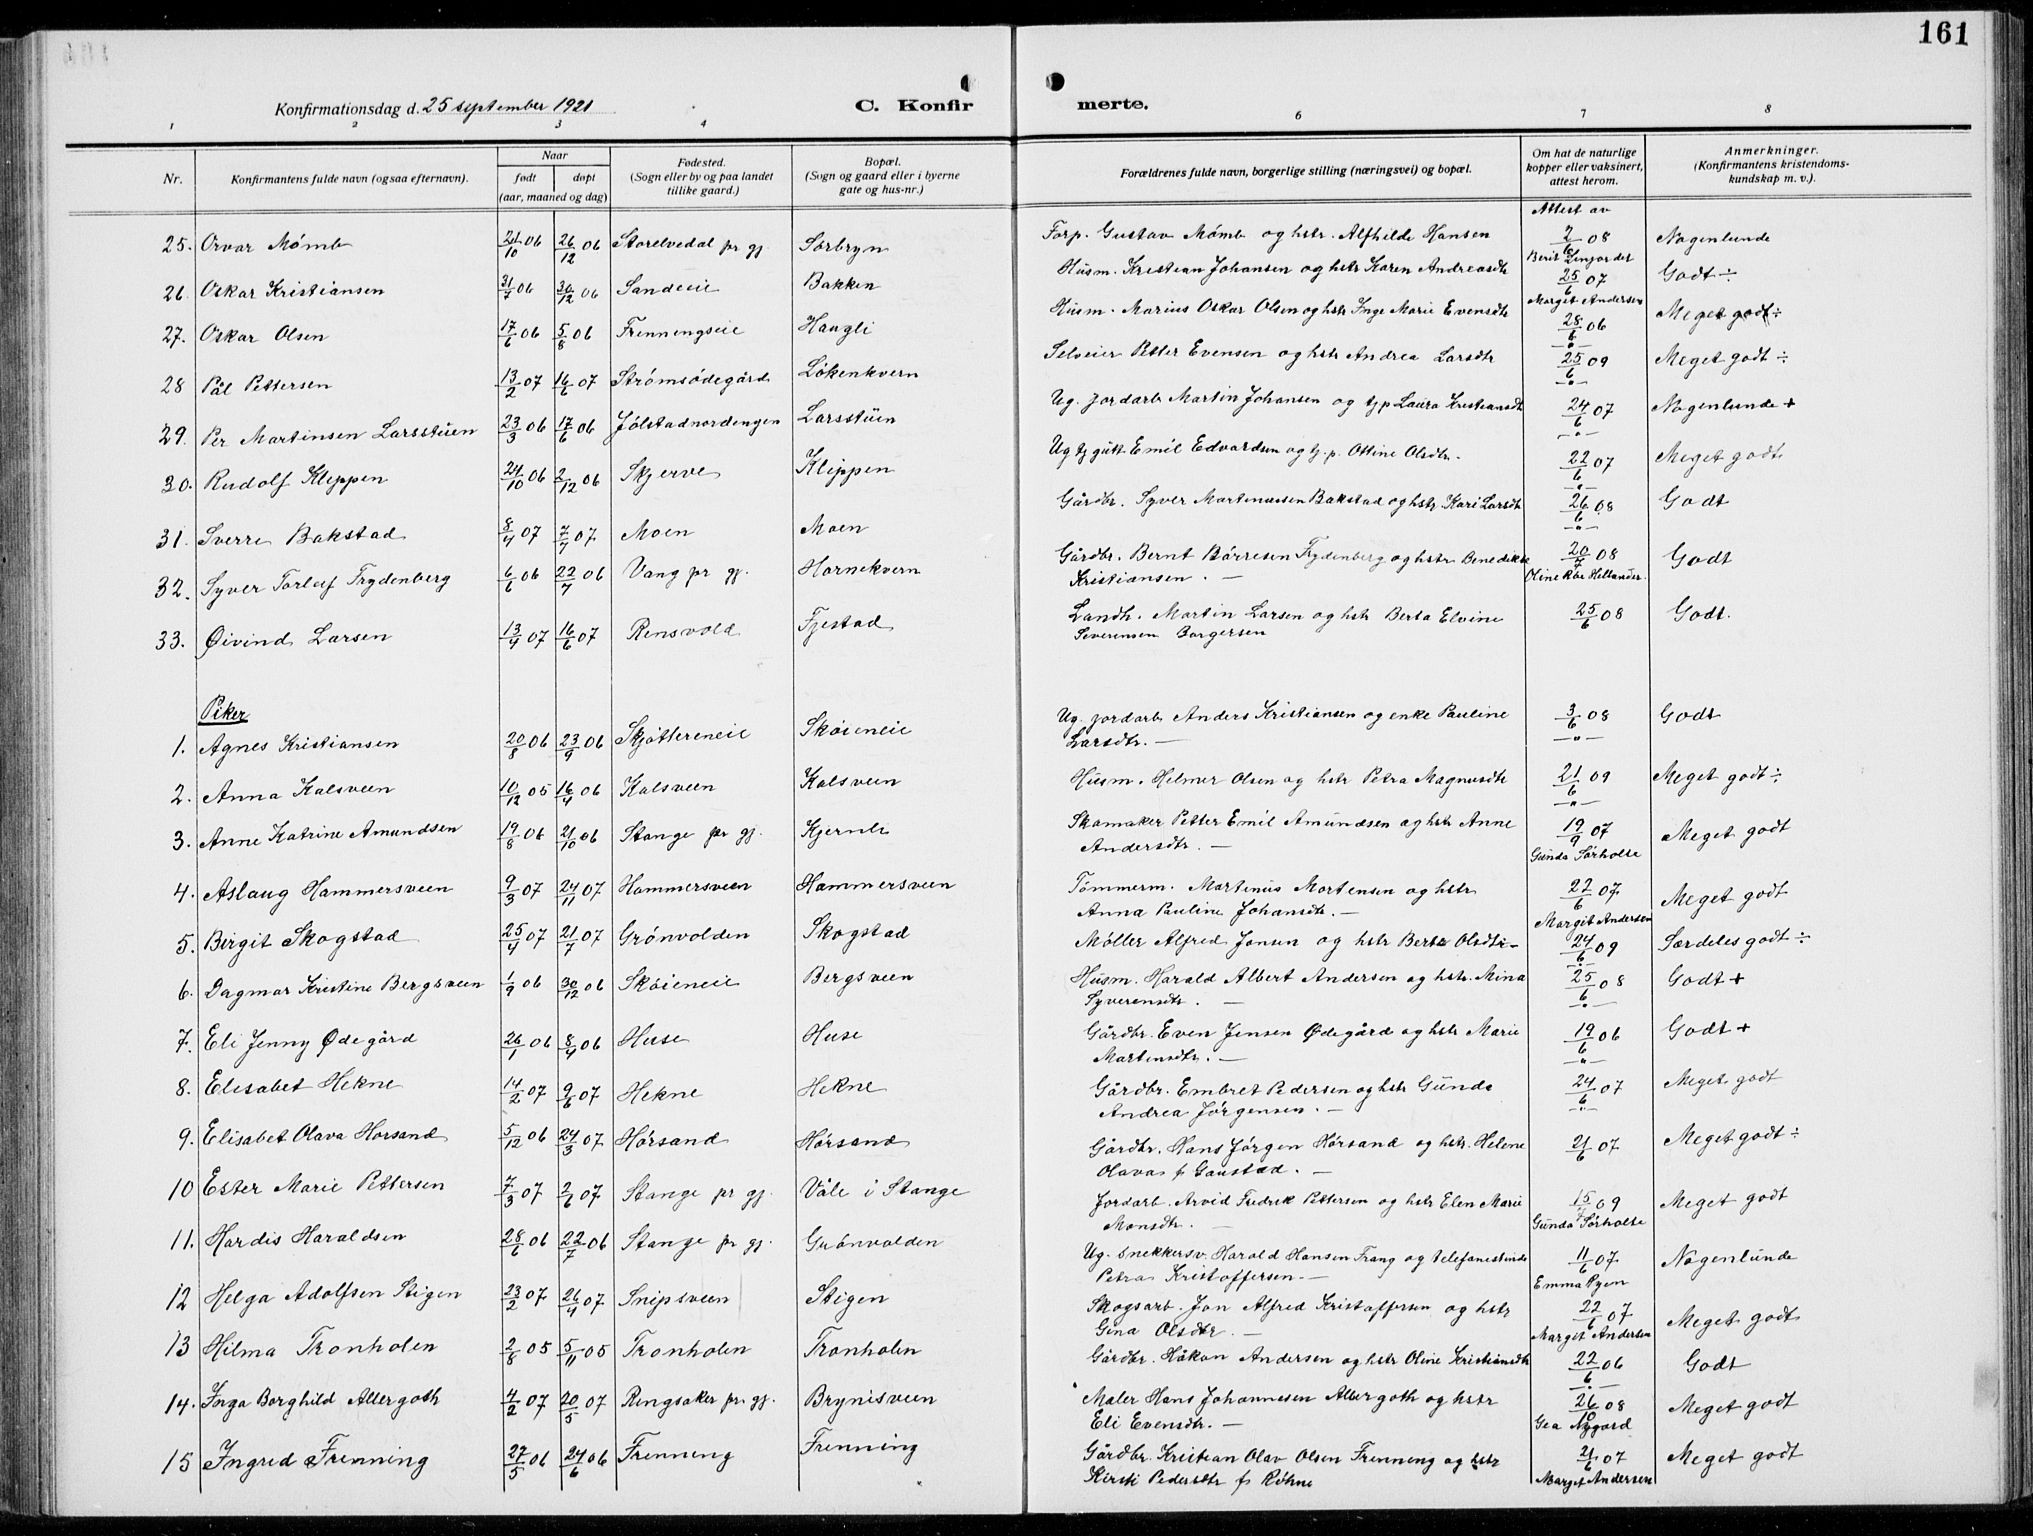 161
Konfirmationsdag d. 25 september 1921
C. Konfir merte.
1 2 3 4 6 7 8
Nr.
Konfirmantens fulde navn (ogsaa efternavn).
Naar
født døpt
(aar, maaned og dag)
Fødested.
(Sogn eller by og paa landet
tillike gaard.)
Bopæl.
(Sogn og gaard eller i byerne
gate og hus-nr.)
Forældrenes fulde navn, borgerlige stilling (næringsvei) og bopæl.
Om hat de naturlige
kopper eller vaksinert,
attest herom.
Anmerkninger.
(Konfirmantens kristendoms-
kundskap m. v.).
Attest av
25. Orvar Mømb 21/10 06 26/12 06 Storelvedal pr gj. Sørbryn Forp. Gustav Mømb og hstr. Alfhilde Hansen 2/6 08 Nogenlunde
Berit Linjordet
26. Oskar Kristiansen 31/7 06 30/12 06 Sandeeie Bakken Husm. Kristian Johansen og hstr Karen Andreasdtr 25/6 07 Godt ÷
Margit Andersen
27. Oskar Olsen 17/6 06 5/8 06 Frenningseie Haugli Husm. Marius Oskar Olsen og hstr Inge Marie Evensdtr 28/6 06 Meget godt ÷
28 Pål Pettersen 13/2 07 16/6 07 Strømsødegård Løkenkvern Selveier Petter Evensen og hstr Andrea Larsdtr 25/6 09 Meget godt ÷
29. Per Martinsen Larsstuen 23/3 06 17/6 06 Jølstadnordengen Larsstuen Ug. jordarb Martin Johansen og tjp Laura Kristiansdtr 24/6 07 Nogenlunde +
30. Rudolf Kleppen 24/10 06 2/12 06 Skjerve Kleppen Ug tj gutt Emil Edvardsen og tj.p. Ottine Olsdtr. 22/6 07 Meget godt
31. Sverre Bakstad 8/4 07 7/7 07 Moen Moen Gårdbr. Syver Martinussen Bakstad og hstr. Kari Larsdtr 26/6 08 Godt
32. Syver Torleif Trydenberg 6/6 06 22/7 06 Vang pr gj. Hornekvern Gårdbr. Bernt Børresen Trydenberg og hstr Benedikte
Kristiansen. — 20/7 08 Godt
Oline Röe Hellander
33. Øivind Larsen 13/4 07 16/6 07 Rensvold Fjestad Landh. Martin Larsen og hstr Berta Elvine
Severensen Borgersen 25/6 08 Godt.
Piker
1. Agnes Kristiansen 20/8 06 23/9 06 Skjøttereneie Skøieneie Ug. jordarb Anders Kristiansen og enke Pauline
Larsdtr. — 3/6 08 Godt
2. Anna Kalsveen 10/12 05 16/4 06 Kalsveen Kalsveen Husm. Helmer Olsen og hstr Petra Magnusdtr 21/6 09 Meget godt ÷
3. Anne Katrine Amundsen 19/8 06 21/10 06 Stange pr gj. Kjernli Skomaker Petter Emil Amundsen og hstr Anne
Andersdtr. — 19/9 07 Meget godt
Gunda Sørholte
4. Aslaug Hammersveen 9/3 07 24/11 07 Hammersveen Hammersveen Tømmerm. Martinus Mortensen og hstr
Anna Pauline Johansdtr. — 27/6 07 Meget godt
Margit Andersen
5. Birgit Skogstad 25/4 07 21/7 07 Grønvolden Skogstad Møller Alfred Jonsen og hstr Berte Olsdtr — 24/6 09 Særdeles godt ÷
6. Dagmar Kristine Bergsveen 1/9 06 30/12 06 Skøieneie Bergsveen Husm. Harald Albert Andersen og hstr. Mina
Syverensdtr. — 25/6 08 Godt +
7. Eli Jenny Ødegård 26/1 06 8/4 06 Huse Huse Gårdbr. Even Jensen Ødegård og hstr Marie
Martensdtr. — 19/6 06 Godt +
8. Elisabet Hekne 14/2 07 9/6 07 Hekne Hekne Gårdbr. Embret Pedersen og hstr Gunda
Andrea Jørgensen. — 24/6 07 Meget godt
9. Elisabet Olava Horsand 5/12 06 24/3 07 Hørsand Hørsand Gårdbr. Hans Jørgen Hørsand og hstr. Helene
Olava f Gaustad. — 21/6 07 Meget godt ÷
10 Ester Marie Pettersen 7/3 07 2/6 07 Stange pr gj. Våle i Stange Jordarb. Arvid Fredrik Pettersen og hstr Elen Marie
Monsdtr. — 15/7 09 Meget godt
Gunda Sørholte
11. Hardis Haraldsen 28/6 06 22/7 06 Stange pr gj. Grønvolden Ug. Snekkersv. Harald Hansen Frang og telefonistinde
Petra Kristoffersen. — 11/6 07 Nogenlunde
Emma Ryen
12 Helga Adolfsen Stigen 23/2 07 26/4 07 Snipsveen Stigen Skogsarb. Jon Alfred Kristoffersen og hstr
Gina Olsdtr. — 22/6 07 Meget godt
Margit Andersen
13 Hilma Tronholen 2/8 05 5/11 05 Tronholen Tronholen Gårdbr. Håkon Andersen og hstr Oline Kristiansdtr 22/6 06 Godt
14. Inga Borghild Allergoth 4/2 07 20/5 07 Ringsaker pr. gj. Brynisveen Maler Hans Johannesen Allergoth og hstr
Eli Evensdtr. — 26/10 08 Meget godt
Gea Nygård
15 Ingrid Frenning 27/5 06 24/6 06 Frenning Frenning Gårdbr. Kristian Olav Olsen Frenning og hstr
Kirsti Pedersdtr f Røhne 21/6 07 Meget godt
Margit Andersen